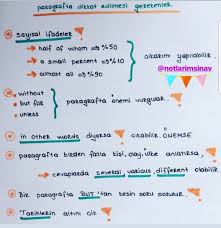 paragrafta dikkat edilmesi gerekenler
sayısal ifadeler
→ half of whom ⇒ %50
→ a small percent ⇒ %10
→ almost all ⇒ %90
çıkarım yapılabilir.
@notlarimsinav
• without
• but for
• unless
paragrafta önemi vurgular.
in other words diyorsa olabilir. ÖNEMSE
paragrafta birden fazla kişi, olay, ülke anlatırsa,
→ cevaplarda several, various, different olabilir
Bir paragrafta BUT 'tan kesin soru sorulur.
Tarihlerin altını çiz